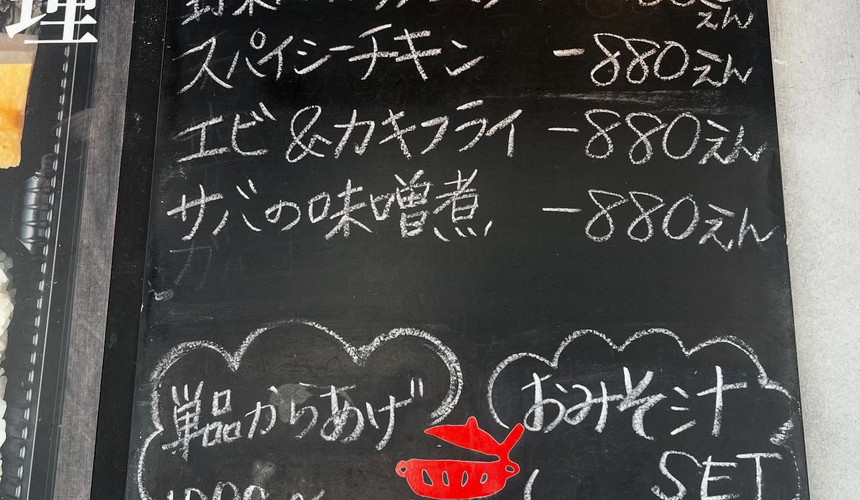 理
えん
スパイシーチキン -880えん
エビ&カキフライ -880えん
サバの味噌煮 -880えん
単品からあげ
おみそ汁
SET